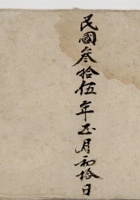 民國叁拾伍年五月初拾日